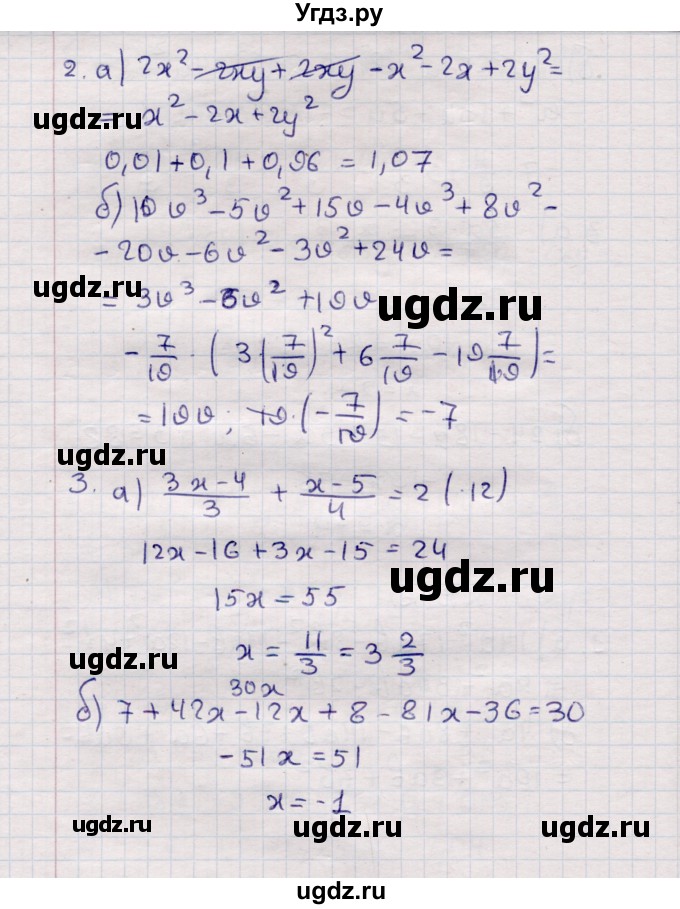 Угдз.ру
2. а) 2x² - 2xy + 2xy - x² - 2x + 2y² =
= x² - 2x + 2y²
ugdz.ru
0,01 + 0,1 + 0,96 = 1,07
б) 10v³ - 5v² + 15v - 4v³ + 8v² -
- 20v - 6v² - 3v² + 24v =
ugdz.ru
= 3v³ - 6v² + 19v
ugdz.ru
- 7/19 · ( 3 (7/19)² + 6 7/19 - 19 7/19 ) =
= 19v ; 19 · (- 7/19) = -7
ugdz.ru
3. а) (3x - 4)/3 + (x - 5)/4 = 2 (·12)
12x - 16 + 3x - 15 = 24
ugdz.ru
15x = 55
x = 11/3 = 3 2/3
ugdz.ru
30x
б) 7 + 42x - 12x + 8 - 81x - 36 = 30
-51x = 51
x = -1
ugdz.ru
ugdz.ru
ugdz.ru
ugdz.ru